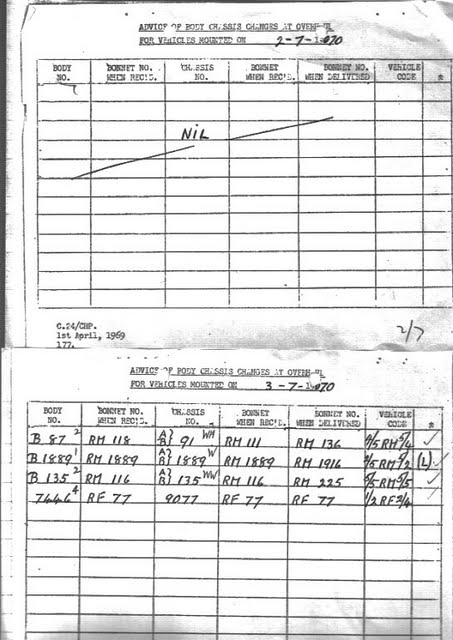 ADVICE OF BODY CHASSIS CHANGES AT OVERHAUL
FOR VEHICLES MOUNTED ON 2-7-1970
BODY NO. BONNET NO. WHEN REC'D. CHASSIS NO. BONNET WHEN REC'D. BONNET NO. WHEN DELIVERED VEHICLE CODE *
NIL
C.24/CHP.
1st April, 1969
177.
2/7
ADVICE OF BODY CHASSIS CHANGES AT OVERHAUL
FOR VEHICLES MOUNTED ON 3-7-1970
BODY NO. BONNET NO. WHEN REC'D. CHASSIS NO. BONNET WHEN REC'D. BONNET NO. WHEN DELIVERED VEHICLE CODE *
B 87 2 RM 118 A/B} 91 WH RM 111 RM 136 5/5 RM 5/4 ✓
B 1889 1 RM 1889 A/B} 1889 W RM 1889 RM 1916 RM 5/2 (L) ✓
B 135 2 RM 116 A/B} 135 WW RM 116 RM 225 5/5 RM 5/5 ✓
7446 4 RF 77 9077 RF 77 RF 77 1/2 RF 2/4 ✓